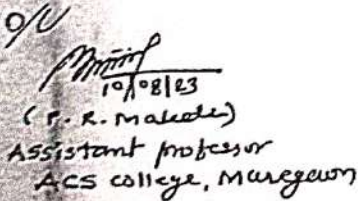 O/U
10/08/23
(P. R. Makode)
Assistant professor
ACS college, Maregaon